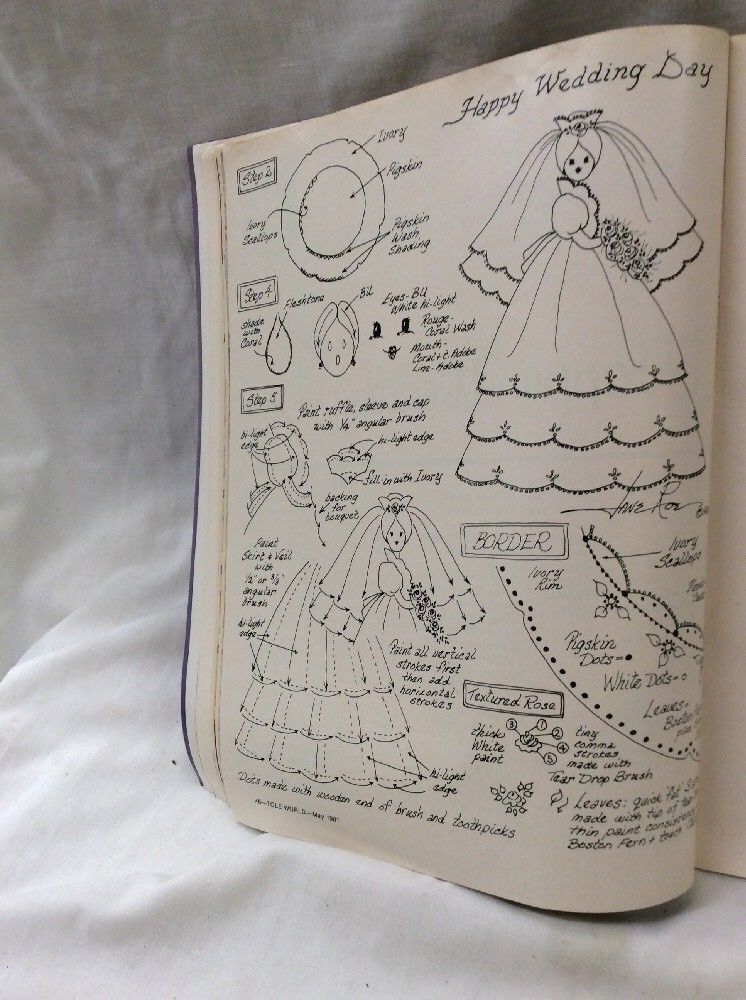 Happy Wedding Day
Step 2
Ivory
Pigskin
Ivory
Scallops
Pigskin
Wash
Shading
Step 4
Fleshtone
shade
with
Coral
Bil
Eyes-Bil
White hi-light
Rouge-
Coral Wash
Mouth-
Coral + t. Adobe
Line-Adobe
Step 5
Paint ruffle, sleeve and cap
with ¼" angular brush
hi-light
edge
hi-light edge
fill in with Ivory
backing
for
bouquet
Paint
Skirt & Veil
with
½" or ⅜"
angular
brush
hi-light
edge
Paint all vertical
strokes first
then add
horizontal
strokes
hi-light
edge
Dots made with wooden end of brush and toothpicks
TOLE WORLD—May, 1981
BORDER
Ivory
Rim
Ivory
Scallops
Pigskin
Dots=
White Dots=
Leaves=
Boston
Textured Rose
thick
White
paint
3
1
2
4
5
tiny
comma
strokes
made with
Tear Drop Brush
Leaves: quick
made with tip of
thin paint
Boston Fern + touch